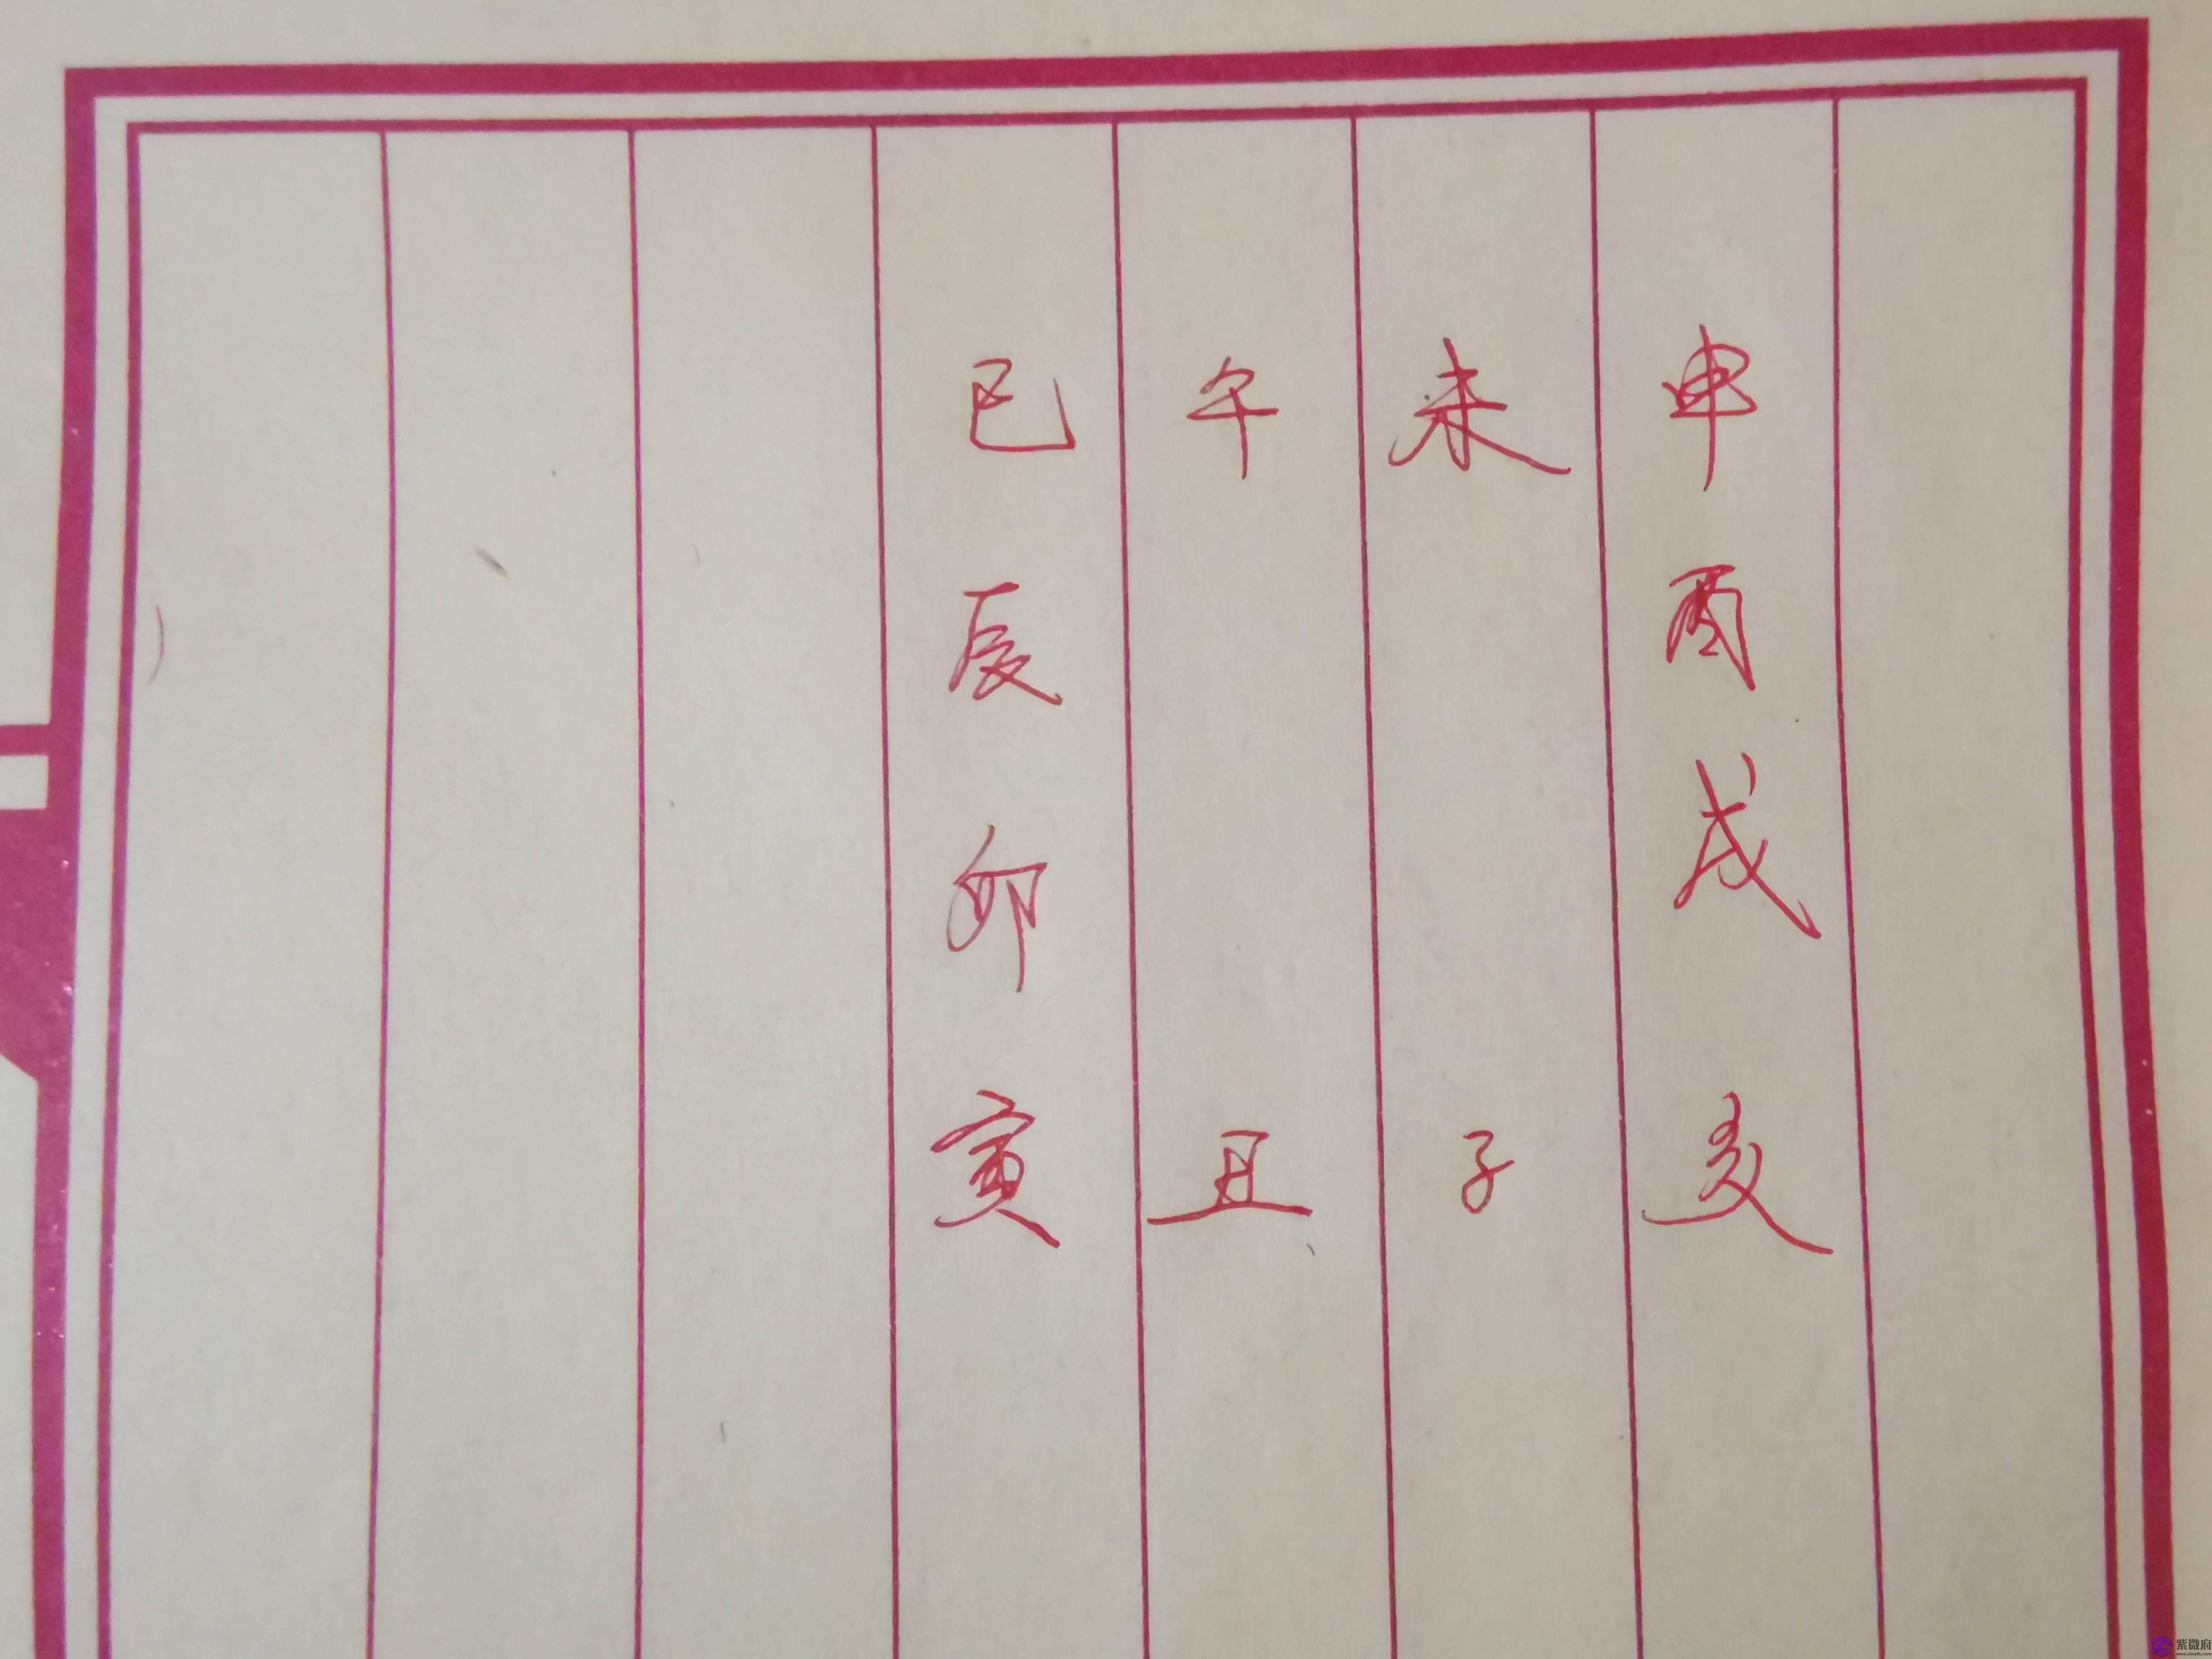 巳 午 未 申
辰 酉
卯 戌
寅 丑 子 亥
紫微府